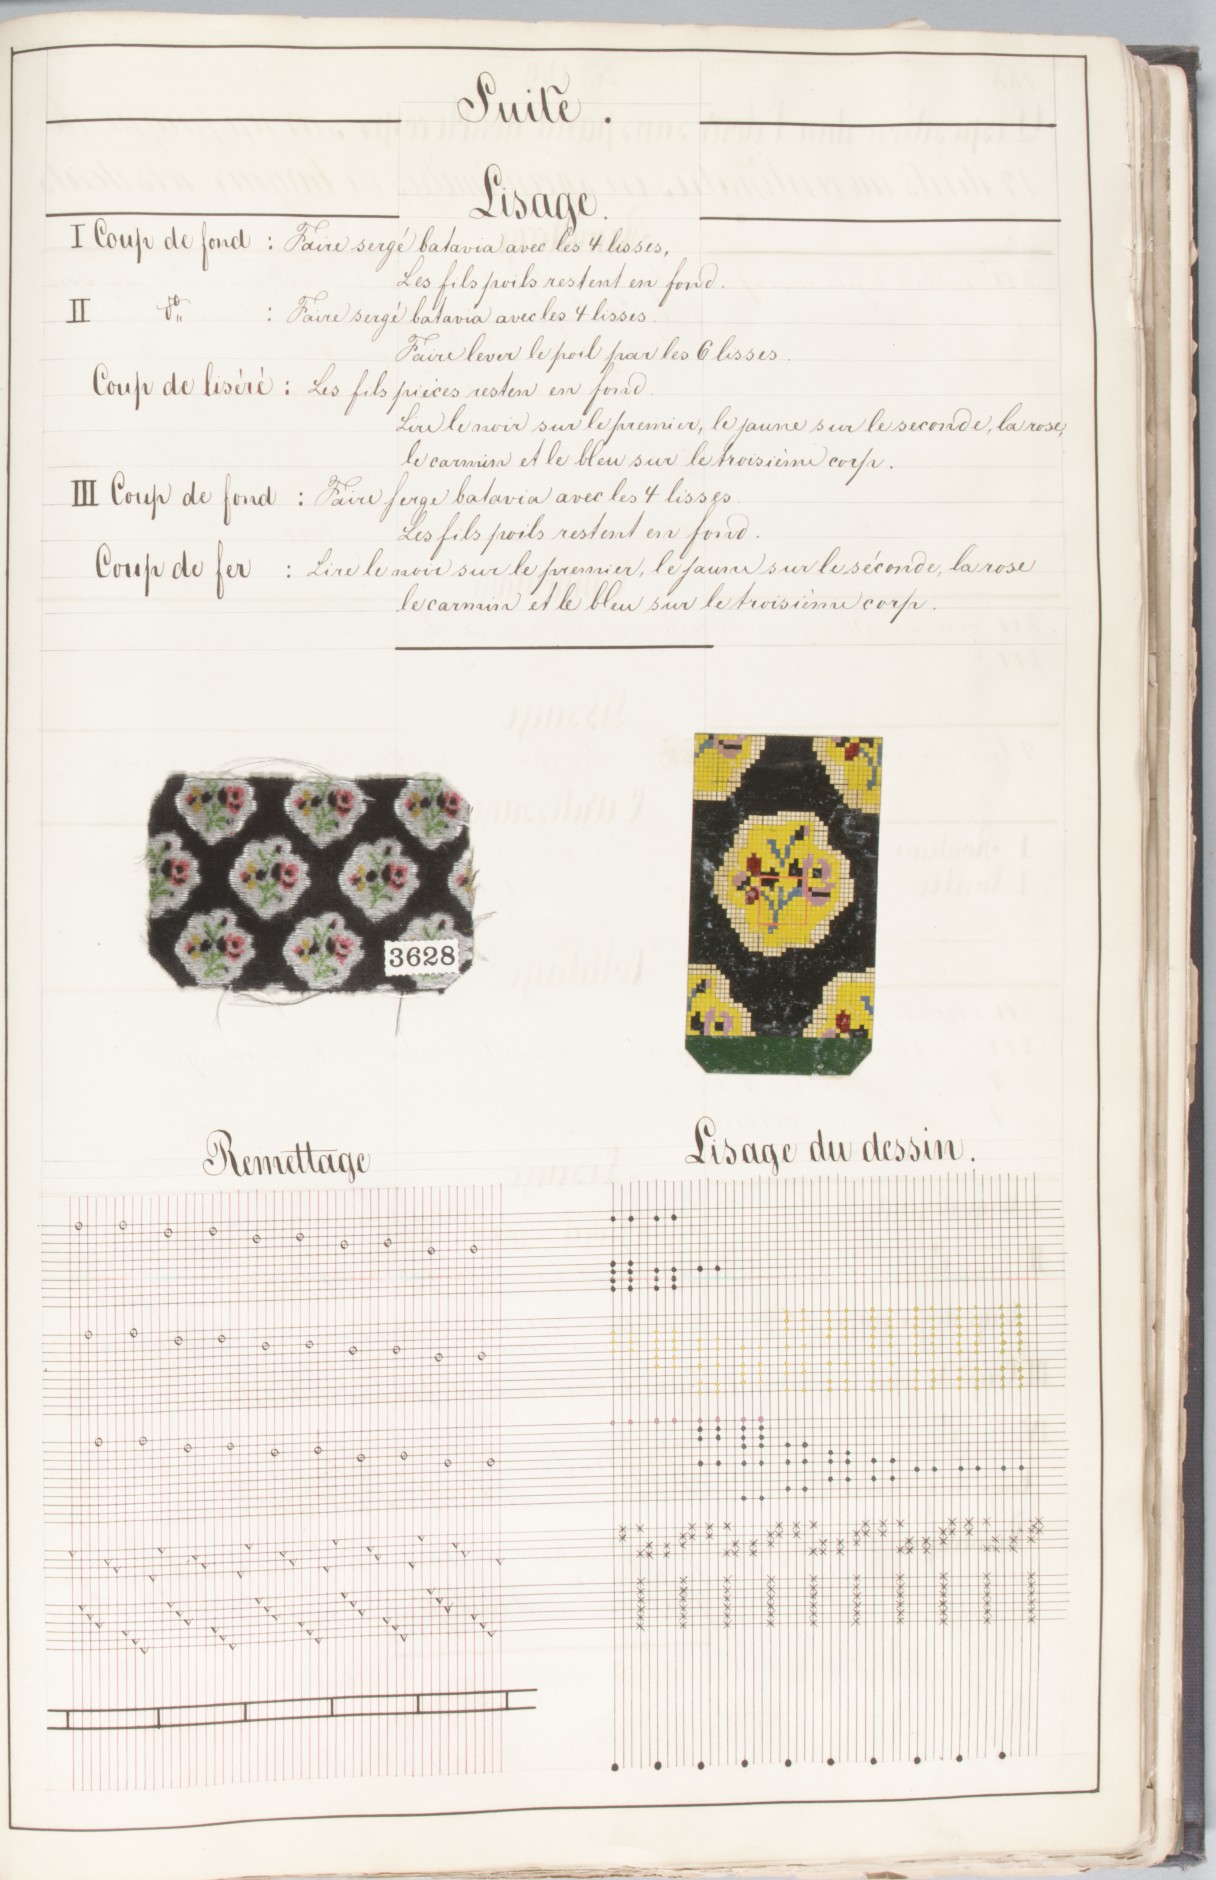 Suite.
Lisage.
I Coup de fond : Faire sergé batavia avec les 4 lisses,
Les fils poils restent en fond.
II do : Faire sergé batavia avec les 4 lisses.
Faire lever le poil par les 6 lisses.
Coup de liséré : Les fils pièces resten en fond.
Lire le noir sur le premier, le jaune sur le seconde, la rose,
le carmin et le bleu sur le troisième corp.
III Coup de fond : Faire serge batavia avec les 4 lisses
Les fils poils restent en fond.
Coup de fer : Lire le noir sur le premier, le jaune sur le séconde, la rose
le carmin et le bleu sur le troisième corp.
3628
Remettage
Lisage du dessin.